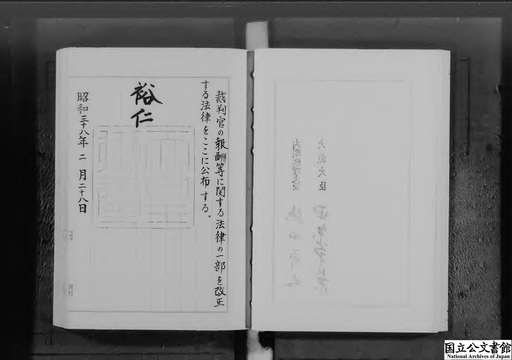 裁判官の報酬等に関する法律の一部を改正
する法律をここに公布する。
裕仁
昭和三十八年二月二十八日
大蔵大臣
国立公文書館
National Archives of Japan